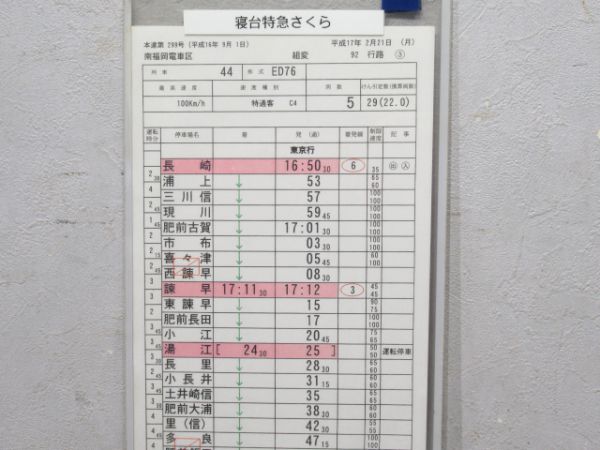 寝台特急さくら
本運第 299号(平成16年 9月 1日) 平成17年 2月21日 (月)
南福岡電車区 組変 92 行路 ③
列車 44 形式 ED76
最高速度 速度種別 両数 けん引定数(換算両数)
100Km/h 特通客 C4 5 29(22.0)
運転時分 停車場名 着 発(通) 着発線 制限速度 記事
東京行
長崎 16:50 30 6 35 出 入
2 30 浦上 ↓ 53 85 60
4 三川信 ↓ 57 100 60
2 45 現川 ↓ 59 45 100 100
2 肥前古賀 ↓ 17:01 30 100 100
2 市布 ↓ 03 30 100 100
2 15 喜々津 ↓ 05 45 100 100
2 45 西諫早 ↓ 08 30
3 諫早 17:11 30 17:12 3 45 45
3 東諫早 ↓ 15 90 75
2 肥前長田 ↓ 17 100 100
3 45 小江 ↓ 20 45 75 65
3 45 湯江 [ 24 30 25 ] 50 50 運転停車
3 30 長里 ↓ 28 30
2 45 小長井 ↓ 31 15
3 45 土井崎信 ↓ 35
3 30 肥前大浦 ↓ 38 30
4 里(信) ↓ 42 30
4 45 多良 ↓ 47 15